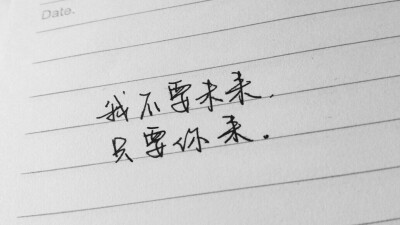 Date.
我不要未来,
只要你来。